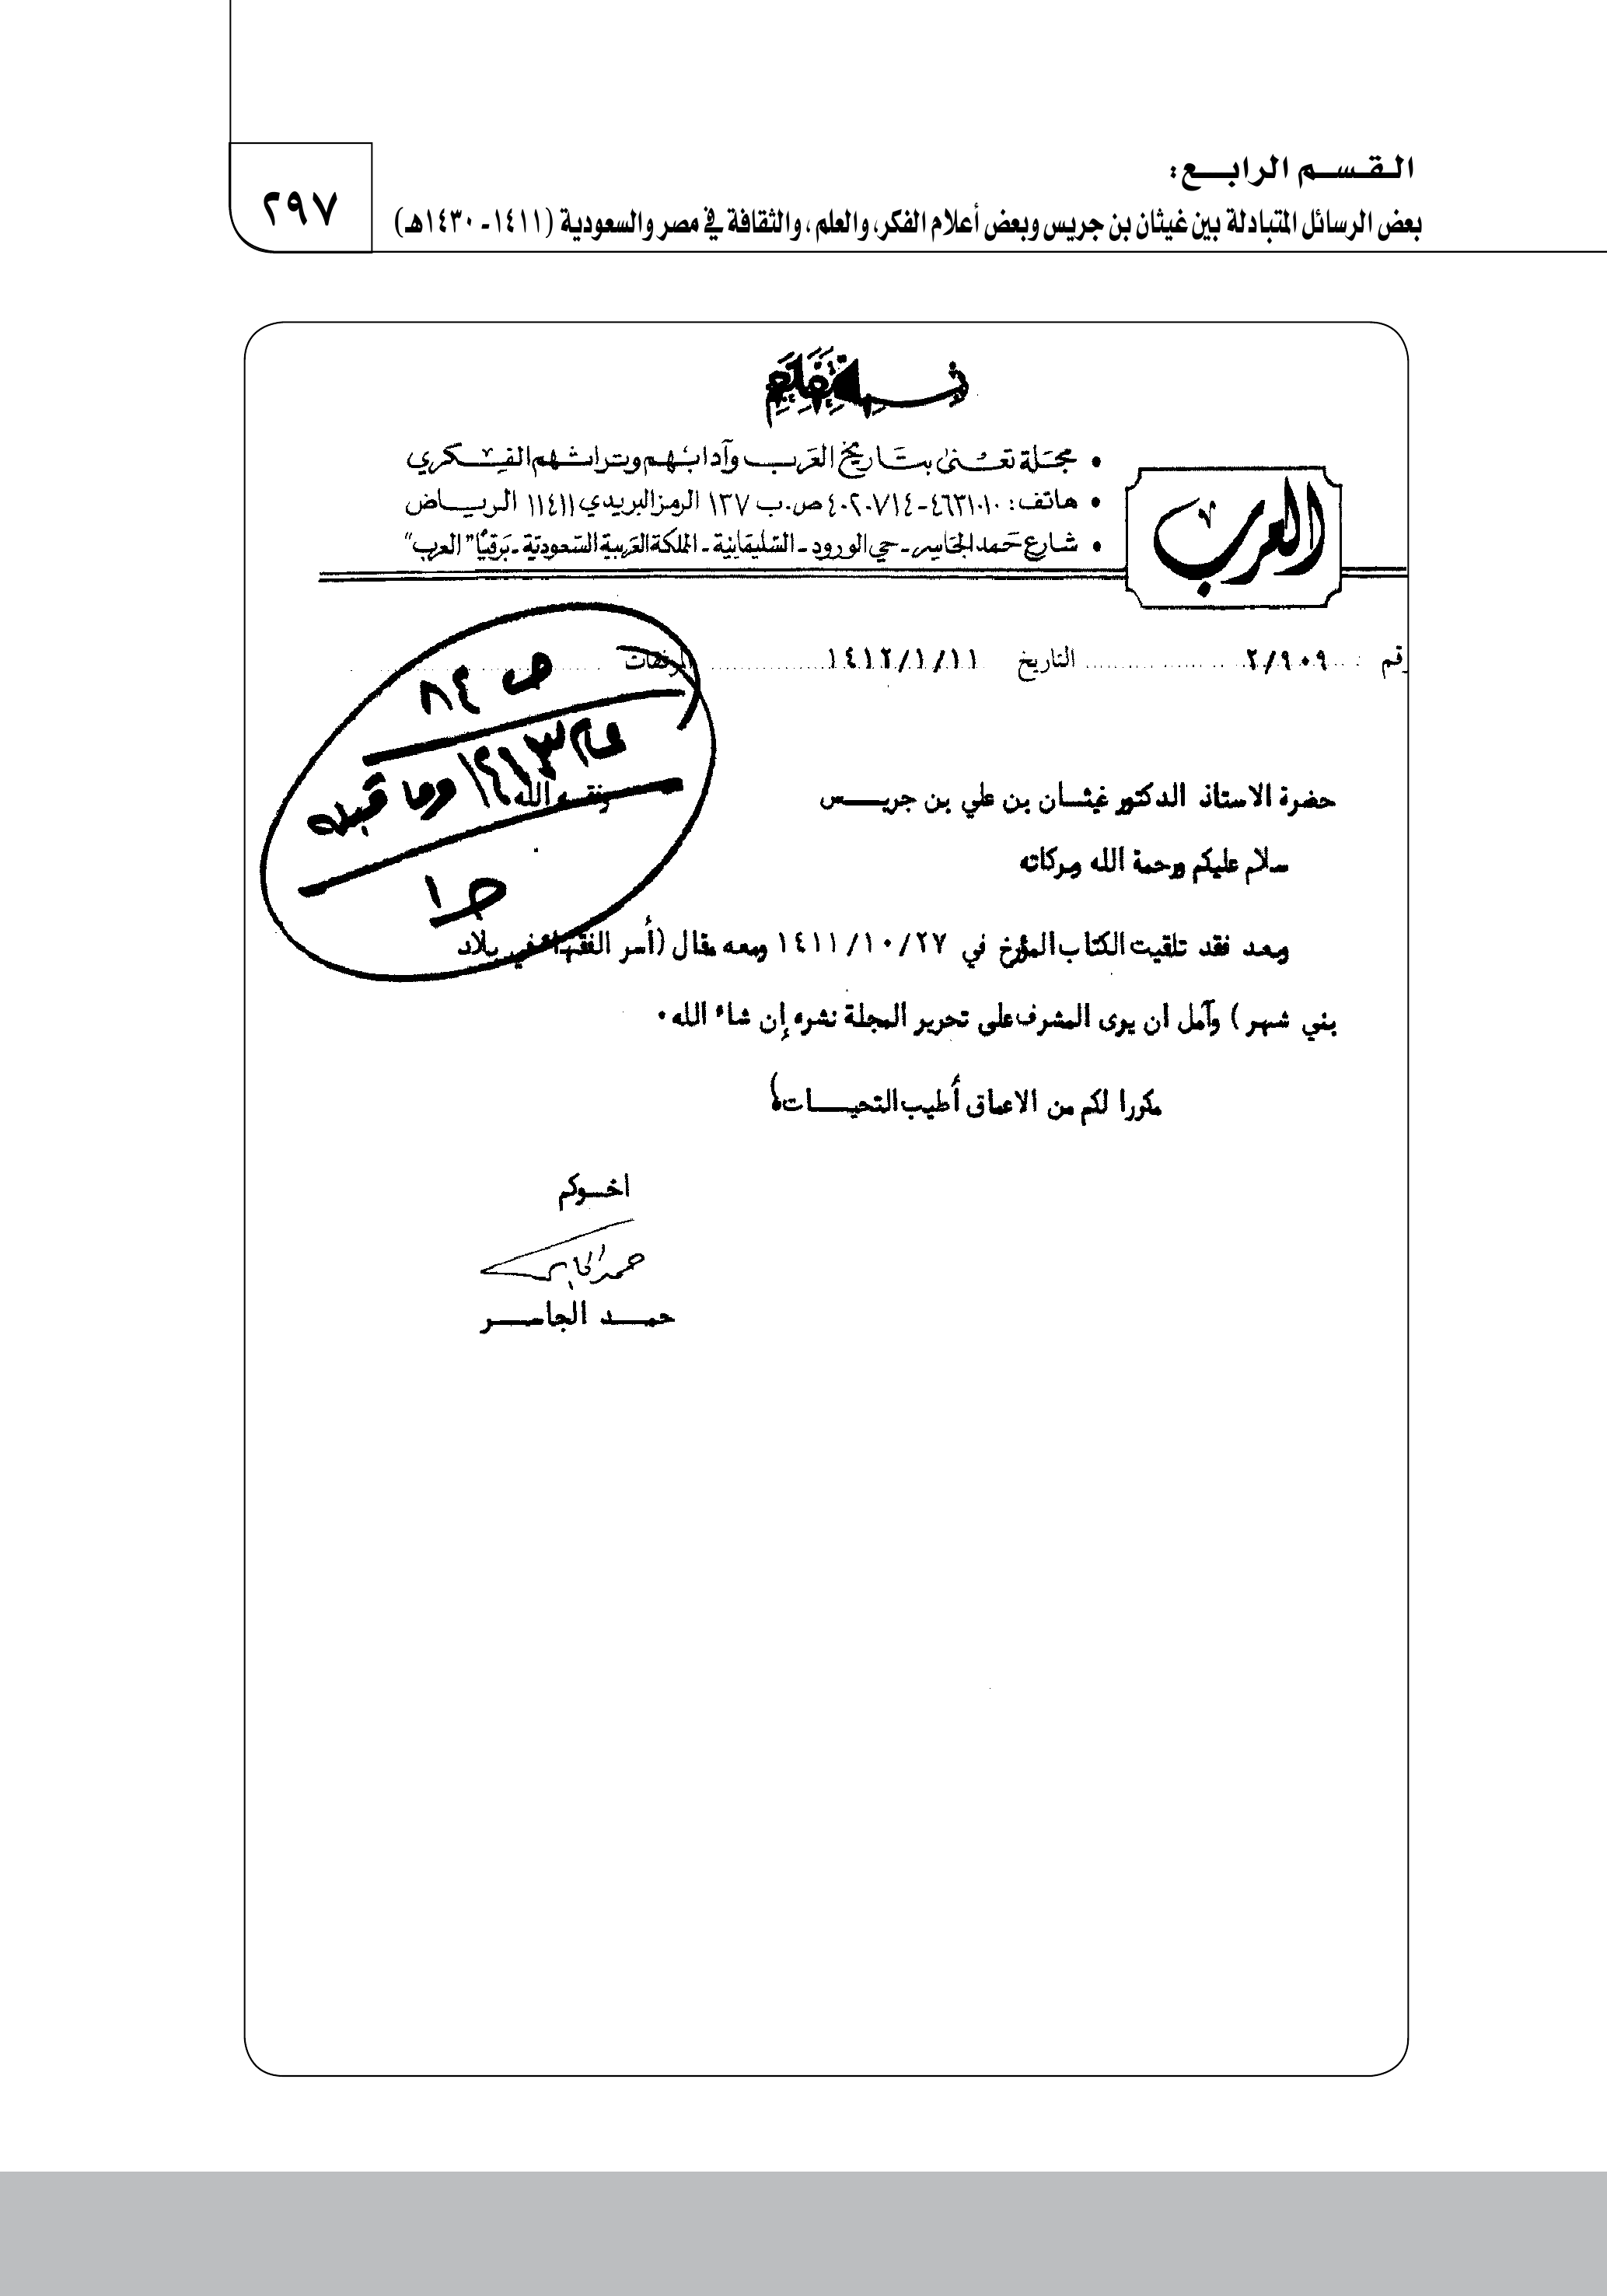 القسم الرابع:
بعض الرسائل المتبادلة بين غيثان بن جريس وبعض أعلام الفكر، والعلم، والثقافة في مصر والسعودية (١٤١١- ١٤٣٠هـ)
٢٩٧
• مجلة تعنى بتاريخ العرب وآدابهم وتراثهم الفكري
• هاتف: ٤٦٣١٠١٠-٤٠٢٠٧١٤ ص.ب ١٣٧ الرمز البريدي ١١٤١١ الرياض
• شارع حمد الجاسر - حي الورود - السليمانية - المملكة العربية السعودية - برقيًا "العرب"
العرب
رقم ٢/٩٠٩ التاريخ ١٤١٢/١/١١ المرفقات
ص ٨٤
عام ١٤١٣ وما قبله
ح١
حضرة الاستاذ الدكتور غيثــان بن علي بن جريــس وفقــه الله
سلام عليكم ورحمة الله وبركاته
وبعد فقد تلقيت الكتاب المؤرخ في ١٤١١/١٠/٢٧ ومعه مقال (أسر الفقهاء في بلاد
بني شهر) وآمل ان يرى المشرف على تحرير المجلة نشره إن شاء الله.
مكررا لكم من الاعماق أطيب التحيــات،
اخــوكم
حمد الجاسر
حمــد الجاســر